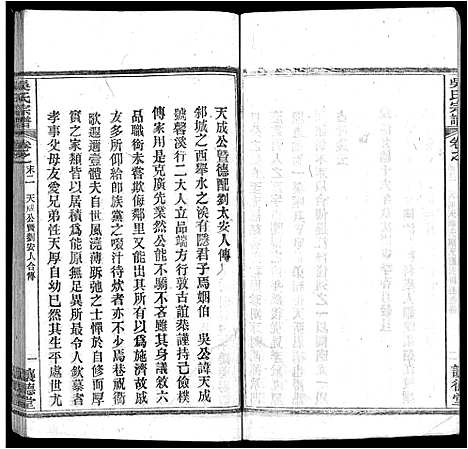 吳氏宗譜
卷之
譓德堂
天成公暨德配劉太安人傳
邾城之西舉水之涘有隱君子焉姻伯 吳公諱天成
號馨溪行二大人立品端方行敦古誼恭謹持己儉樸
傳家用是克廣先業然公能不驕不吝雖其身議敘六
品職銜未嘗欺侮鄰里又能出其所有以為施濟故戚
友多所仰給即族黨之啜汁待炊者亦不少焉巷祝衢
歌遐邇壹體夫自世風澆薄跅弛之士憚於自求而殷
實之家類皆以居積為能原無足異所最令人欽慕者
孝事父母友愛兄弟性天厚自幼已然其生平處世尤
吳氏宗譜
卷之末二 天成公暨劉安人合傳
一 譓德堂